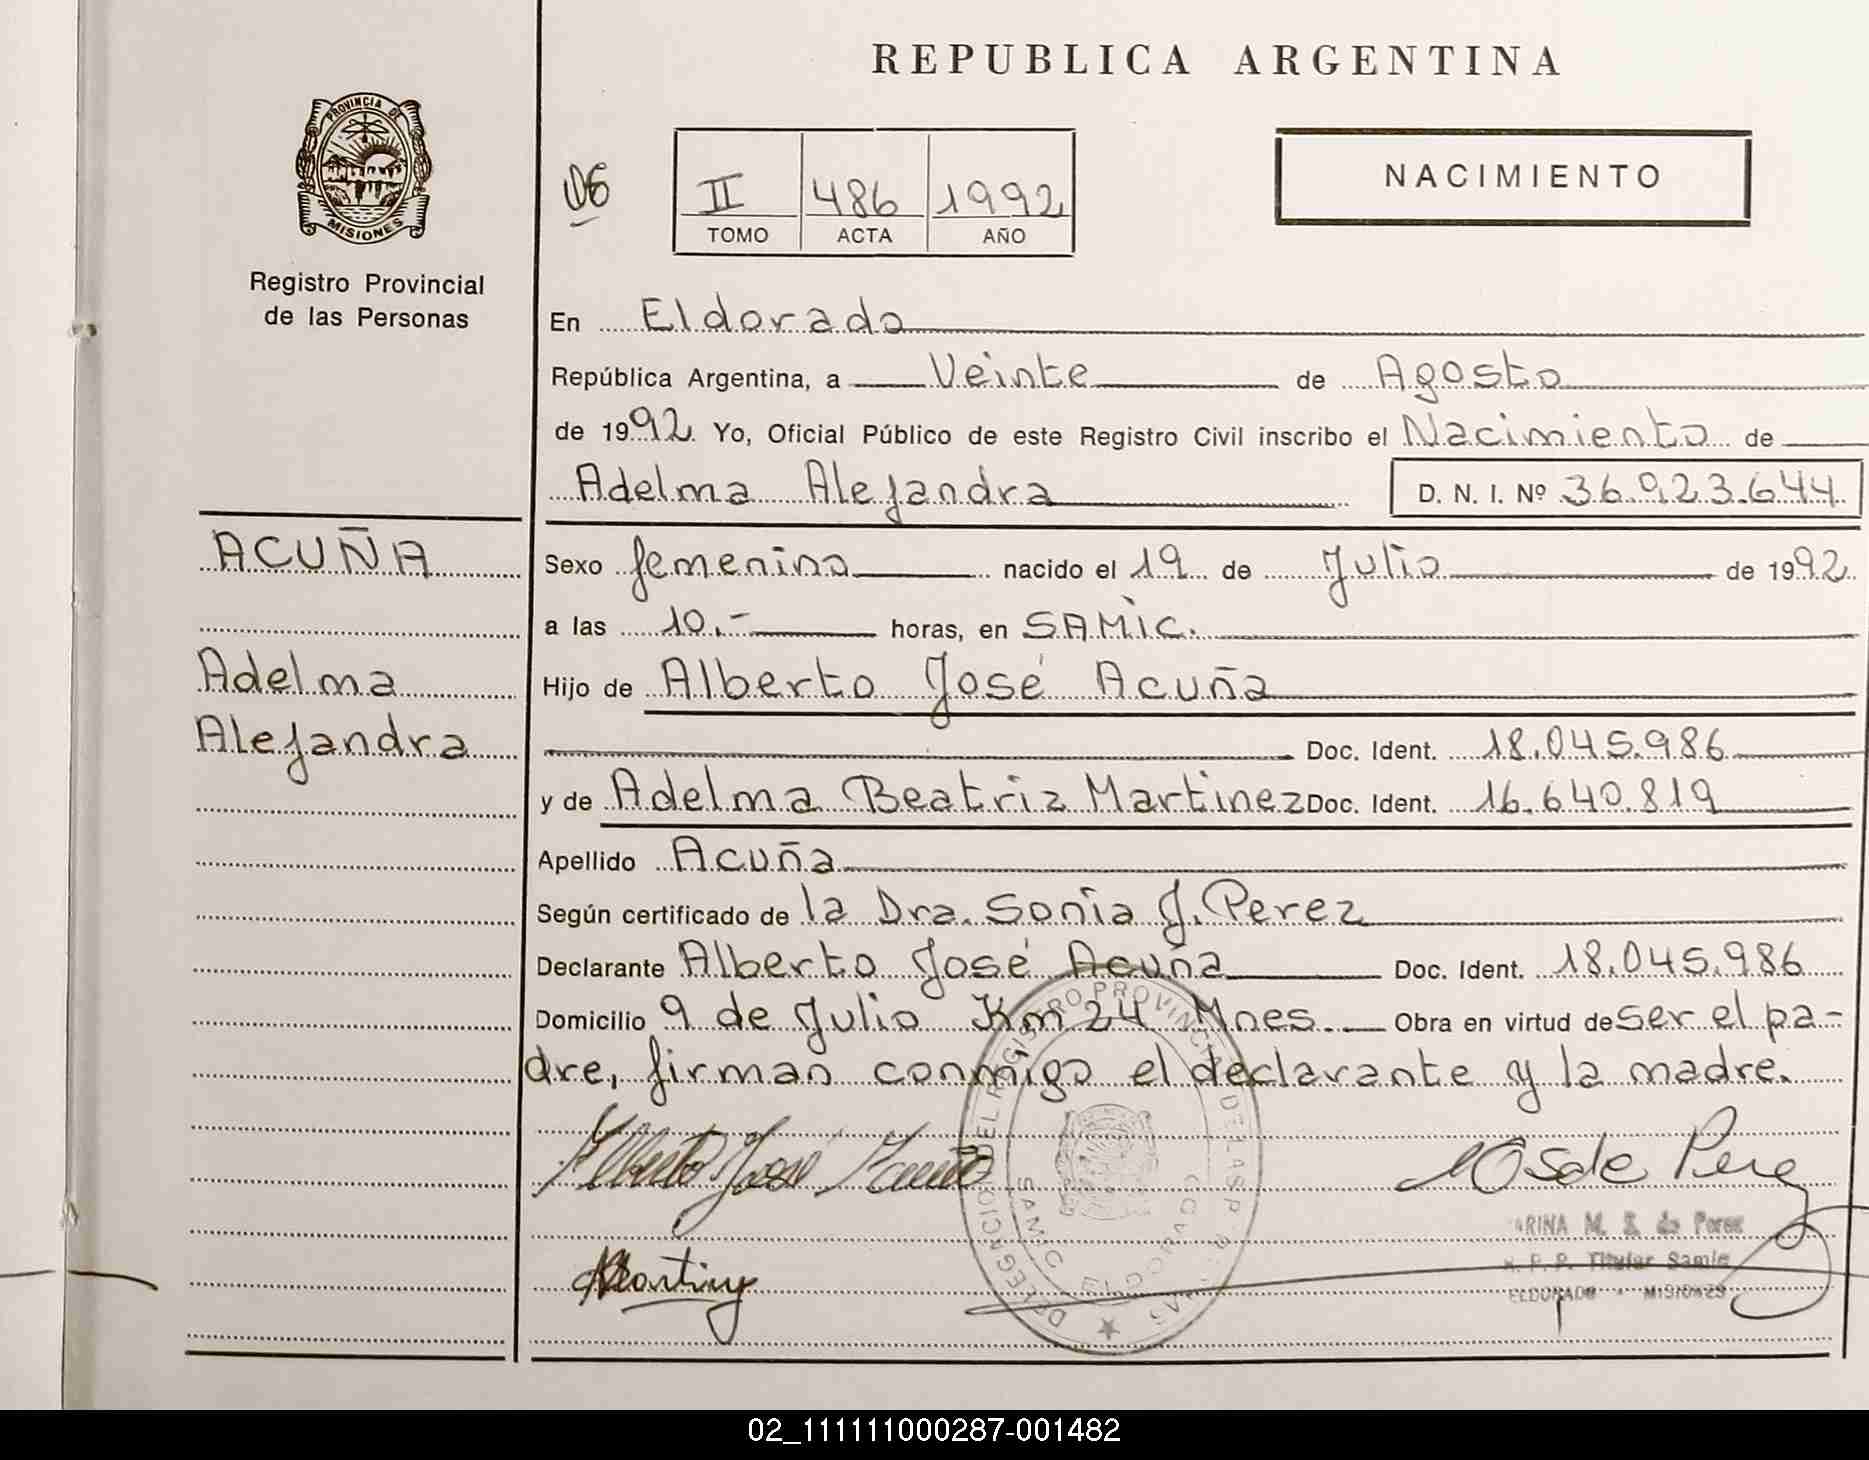 REPUBLICA ARGENTINA
PROVINCIA DE
MISIONES
Registro Provincial
de las Personas
06
II 486 1992
TOMO ACTA AÑO
NACIMIENTO
En Eldorado
República Argentina, a Veinte de Agosto
de 1992. Yo, Oficial Público de este Registro Civil inscribo el Nacimiento de
Adelma Alejandra D. N. I. Nº 36.923.644
ACUÑA
Adelma
Alejandra
Sexo femenino nacido el 19 de Julio de 1992
a las 10.- horas, en SAMIC.
Hijo de Alberto José Acuña
Doc. Ident. 18.045.986
y de Adelma Beatriz Martinez Doc. Ident. 16.640.819
Apellido Acuña
Según certificado de la Dra. Sonia J. Perez
Declarante Alberto José Acuña Doc. Ident. 18.045.986
Domicilio 9 de Julio Km 24 Mnes. Obra en virtud de ser el pa-
dre, firman conmigo el declarante y la madre.
Alberto José Acuña
de Perez
DELEGACION DEL REGISTRO PROVINCIAL DE LAS
SAMIC ELDORADO
M. S. de Perez
Titular Samic
ELDORADO - MISIONES
02_111111000287-001482